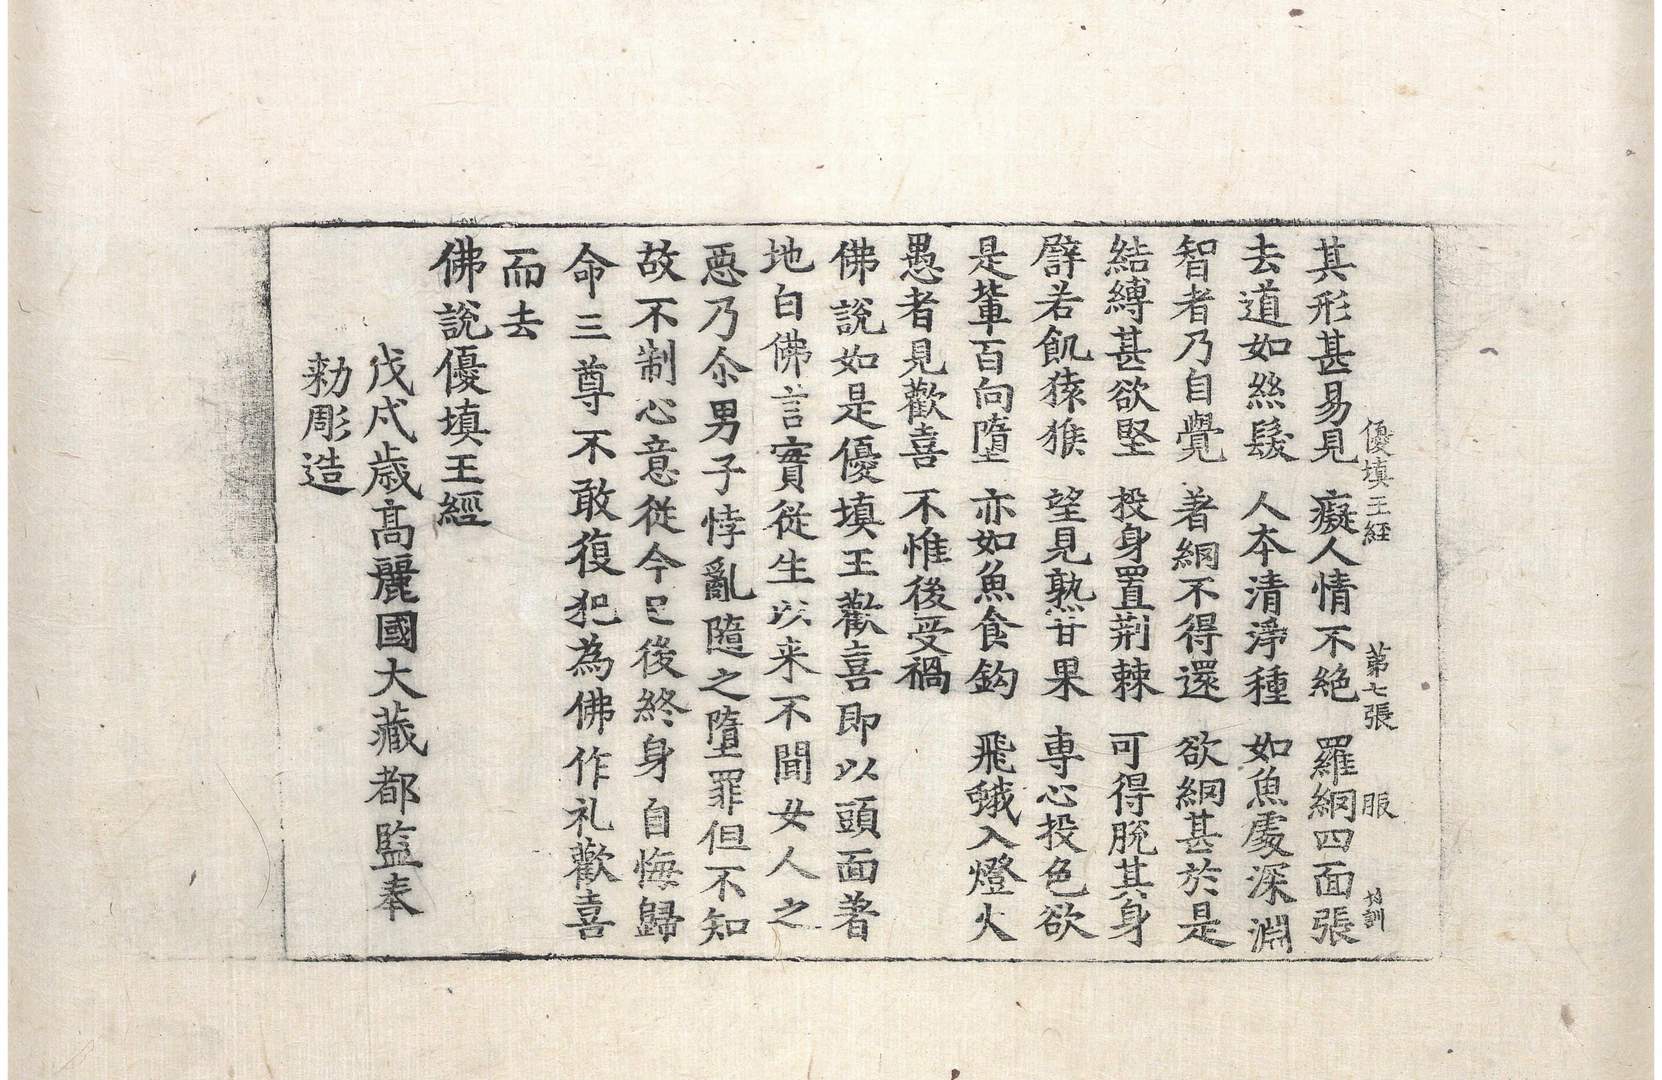 優填王経 第七張 服
其形甚易見 癡人情不絶 羅網四面張
去道如絲髮 人本清淨種 如魚處深淵
智者乃自覺 著網不得還 欲網甚於是
結縛甚欲堅 投身置荆棘 可得脫其身
譬若飢猿猴 望見熟甘果 專心投色欲
是輩百向墮 亦如魚食鈎 飛蛾入燈火
愚者見歡喜 不惟後受禍
佛說如是優填王歡喜即以頭面著
地白佛言實從生以来不聞女人之
惡乃尒男子悖亂隨之墮罪但不知
故不制心意從今已後終身自悔歸
命三尊不敢復犯為佛作礼歡喜
而去
佛說優填王經
戊戌歳高麗國大藏都監奉
勑彫造